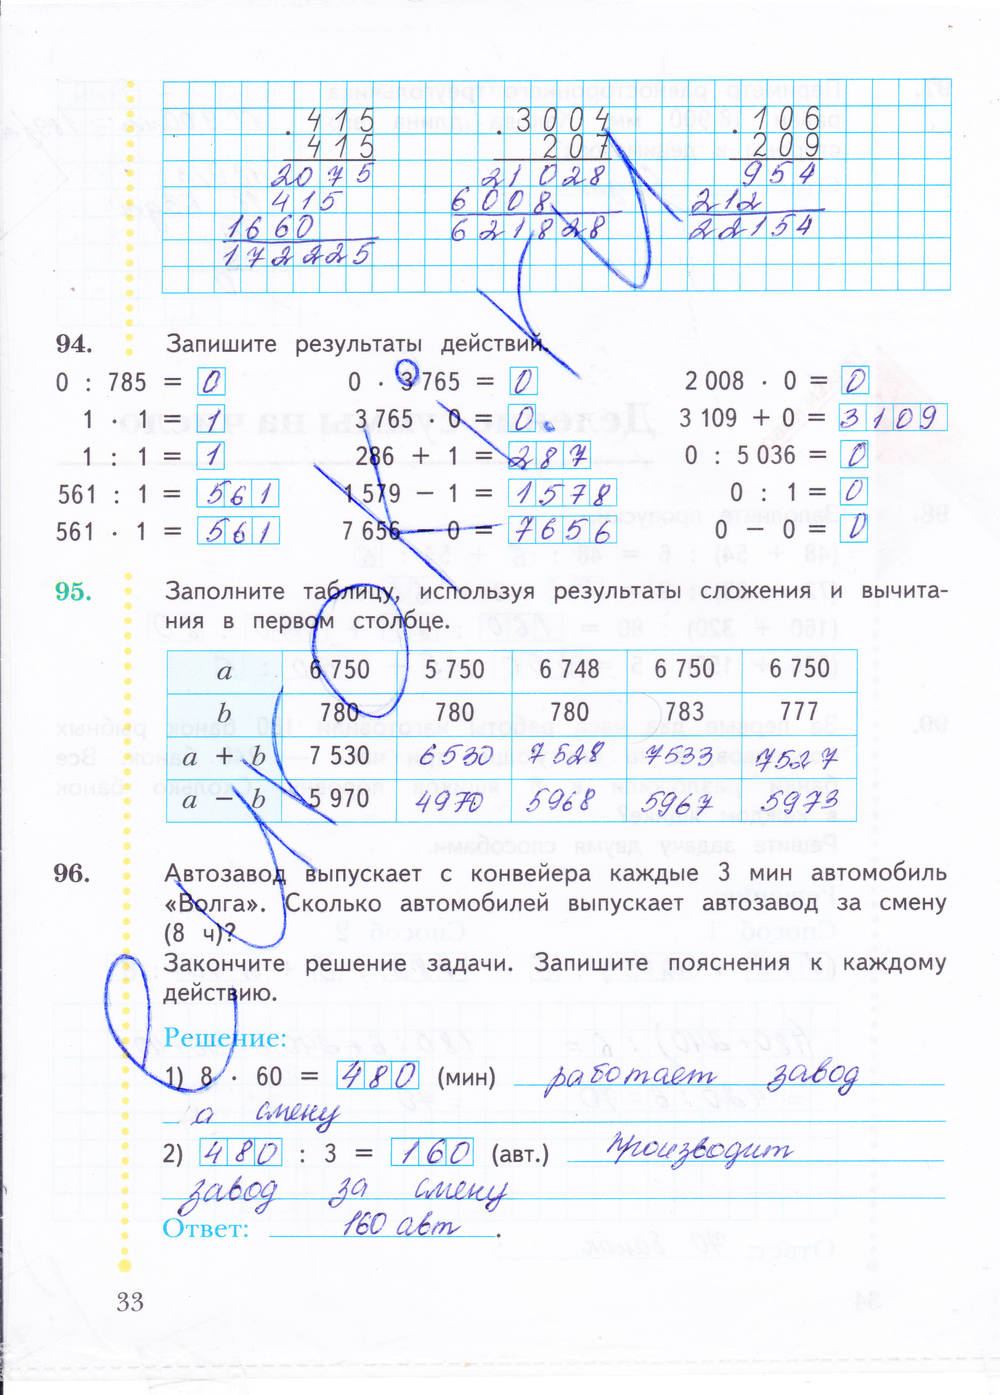 . 415 . 3004 . 106
415 207 209
2075 21028 954
415 6008 212
1660 621828 22154
172225
94. Запишите результаты действий.
0 : 785 = 0 0 · 3 765 = 0 2 008 · 0 = 0
1 · 1 = 1 3 765 · 0 = 0 3 109 + 0 = 3109
1 : 1 = 1 286 + 1 = 287 0 : 5 036 = 0
561 : 1 = 561 1 579 − 1 = 1578 0 : 1 = 0
561 · 1 = 561 7 656 − 0 = 7656 0 − 0 = 0
95. Заполните таблицу, используя результаты сложения и вычита-
ния в первом столбце.
a 6 750 5 750 6 748 6 750 6 750
b 780 780 780 783 777
a + b 7 530 6530 7528 7533 7527
a − b 5 970 4970 5968 5967 5973
96. Автозавод выпускает с конвейера каждые 3 мин автомобиль
«Волга». Сколько автомобилей выпускает автозавод за смену
(8 ч)?
Закончите решение задачи. Запишите пояснения к каждому
действию.
Решение:
1) 8 · 60 = 480 (мин) работает завод
а смену
2) 480 : 3 = 160 (авт.) производит
завод за смену
Ответ: 160 авт .
33